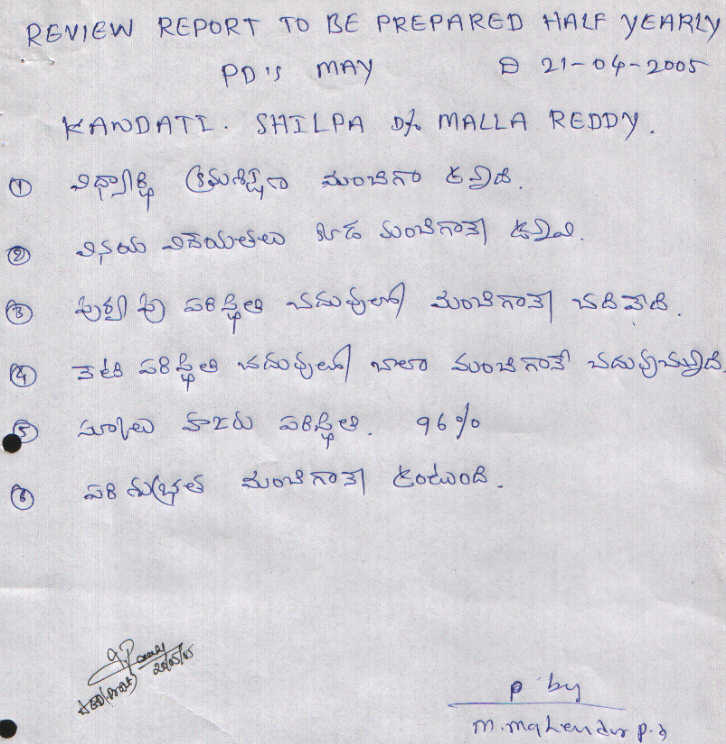 REVIEW REPORT TO BE PREPARED HALF YEARLY
PD'S MAY D 21-04-2005
KANDATI. SHILPA D/o MALLA REDDY.
① విద్యార్థి క్రమశిక్షణ మంచిగా ఉన్నది.
② వినయ విదేయతలు కుడ మంచిగానే ఉన్నవి.
③ పూర్వపు పరిస్థితి చదువులో మంచిగానే చదివేది.
④ నేటి పరిస్థితి చదువులో చాలా మంచిగానే చదువుచున్నది.
⑤ స్కూలు హాజరు పరిస్థితి. 96%
⑥ పరిశుభ్రత మంచిగానే ఉంటుంది.
P by
M. Mahendar P.D